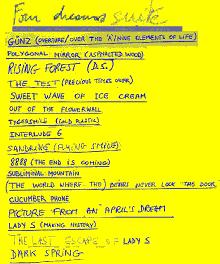 Four dreams suite.
GÜNZ (OVERTURE/OVER THE 'A'/NINE ELEMENTS OF LIFE)
POLYGONAL MIRROR (ASPHALTED WOOD)
RISING FOREST (D.S.)
THE TEST (PRECIOUS TIMES OVER)
SWEET WAVE OF ICE CREAM
OUT OF THE FLOWERWALL
TYGERSMILE (GOLD PLASTIC)
INTERLUDE 6
SANDRINE (FLYING SMILE)
8888 (THE END IS COMING)
SUBLIMINAL MOUNTAIN
(THE WORLD WHERE THE) DEBRI NEVER LOCK THIS DOOR
CUCUMBER PHONE
PICTURE FROM AN APRIL'S DREAM
LADY S (MAKING HISTORY)
THE LAST ESCAPE OF LADY S
DARK SPRING